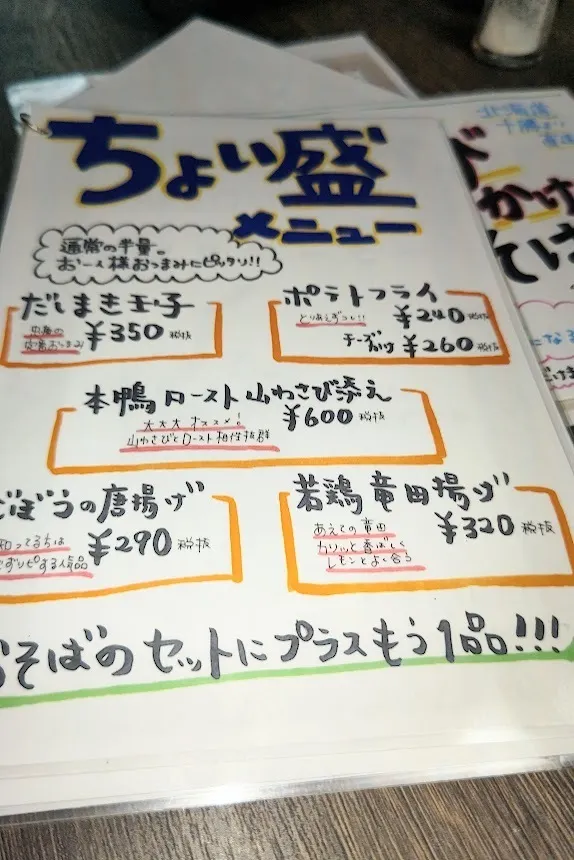 ちょい盛
メニュー
通常の半量。
お一人様おつまみにピッタリ!!
だしまき玉子
¥350 税抜
ポテトフライ
とりあえずコレ!!
¥240 税抜
チーズがけ ¥260 税抜
本鴨ロースト山わさび添え
¥600 税抜
大大大オススメ!
山わさびとロースト相性抜群
ごぼうの唐揚げ
知ってる方は
必ずリピする人気品
¥290 税抜
若鶏竜田揚げ
¥320 税抜
あえての竜田
カリッと香ばしく
レモンとよく合う
おそばのセットにプラスもう1品!!!
北海道
十勝
かけ
そば